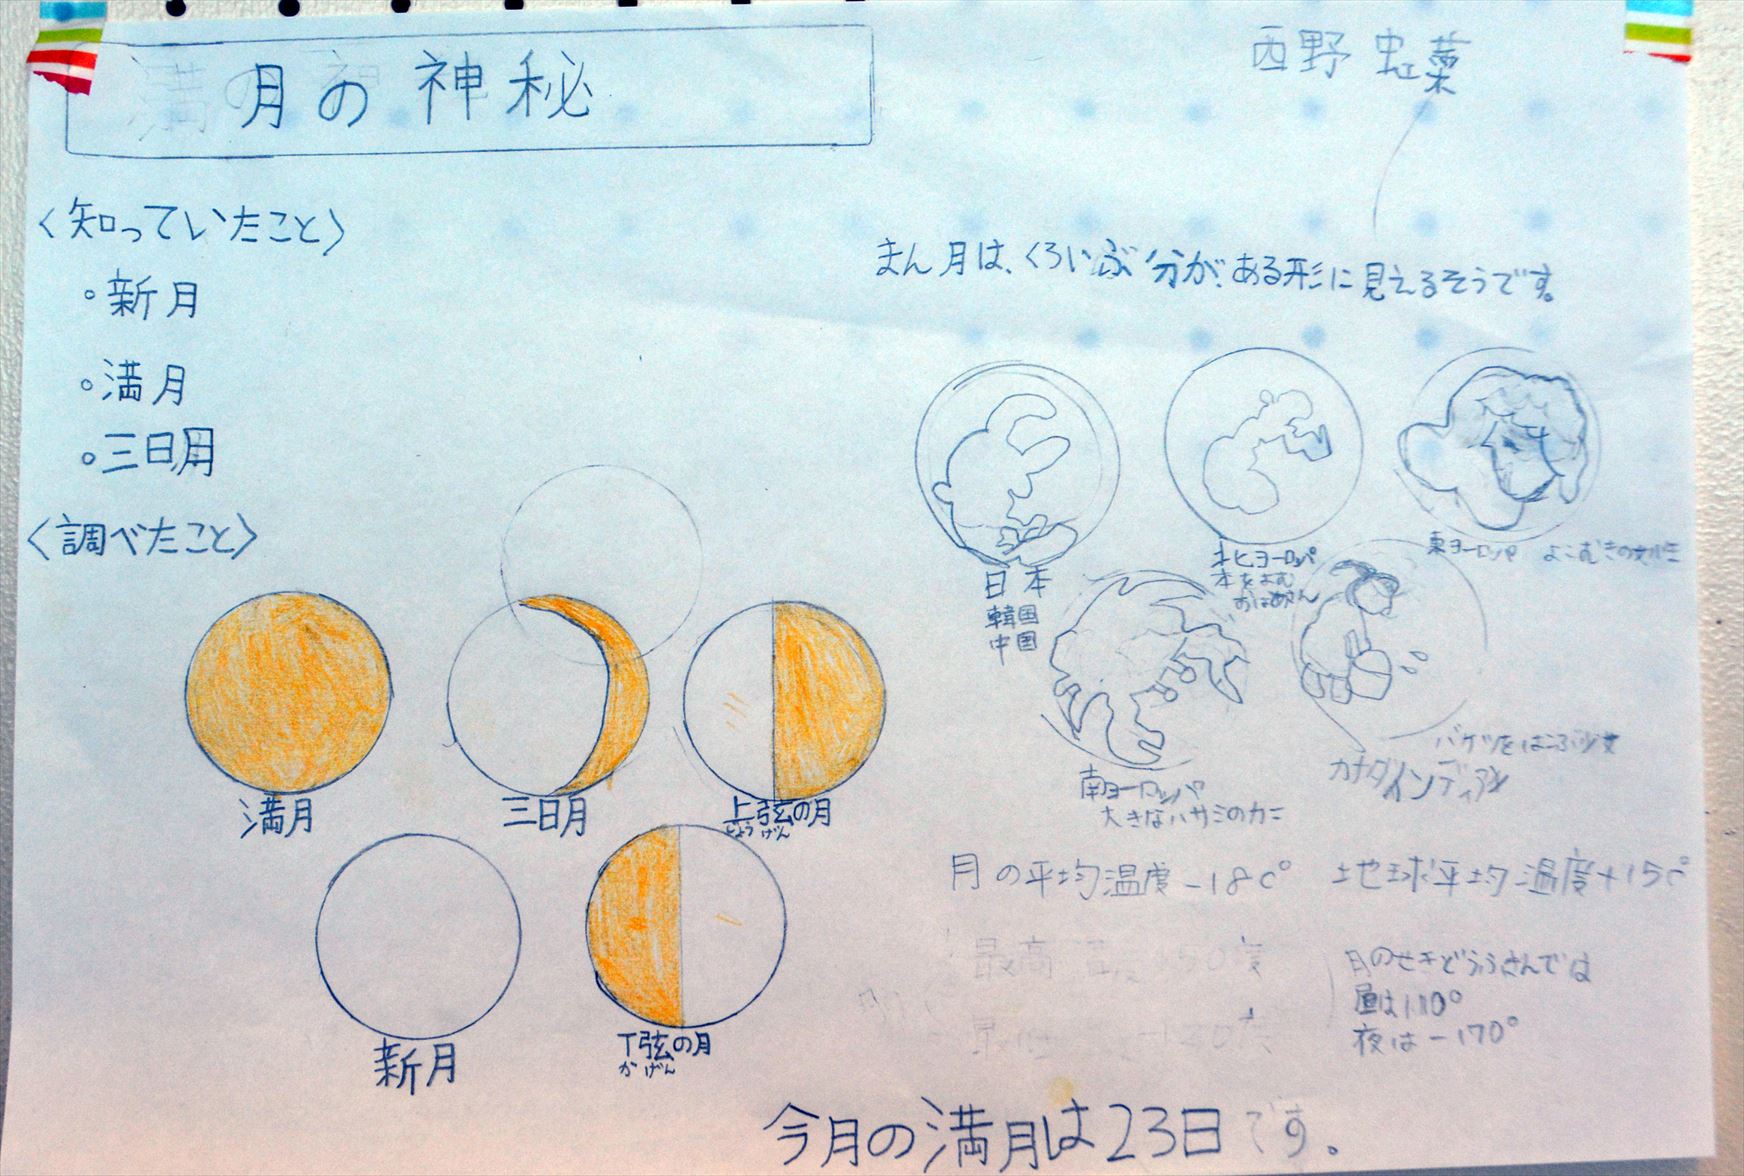 月の神秘
西野 虹菜
〈知っていたこと〉
。新月
。満月
。三日月
〈調べたこと〉
満月
三日月
上弦の月
じょう げん
新月
下弦の月
か げん
まん月は、くろいぶ分が、ある形に見えるそうです。
日本
韓国
中国
北ヨーロッパ
本をよむ
おばあさん
東ヨーロッパ よこむきの女性
南ヨーロッパ
大きなハサミのカニ
バケツをはこぶ少女
カナダインディアン
月の平均温度-18c° 地球平均温度+15c°
最高温度
月のせきどうふきんでは
昼は110°
夜は-170°
今月の満月は23日です。